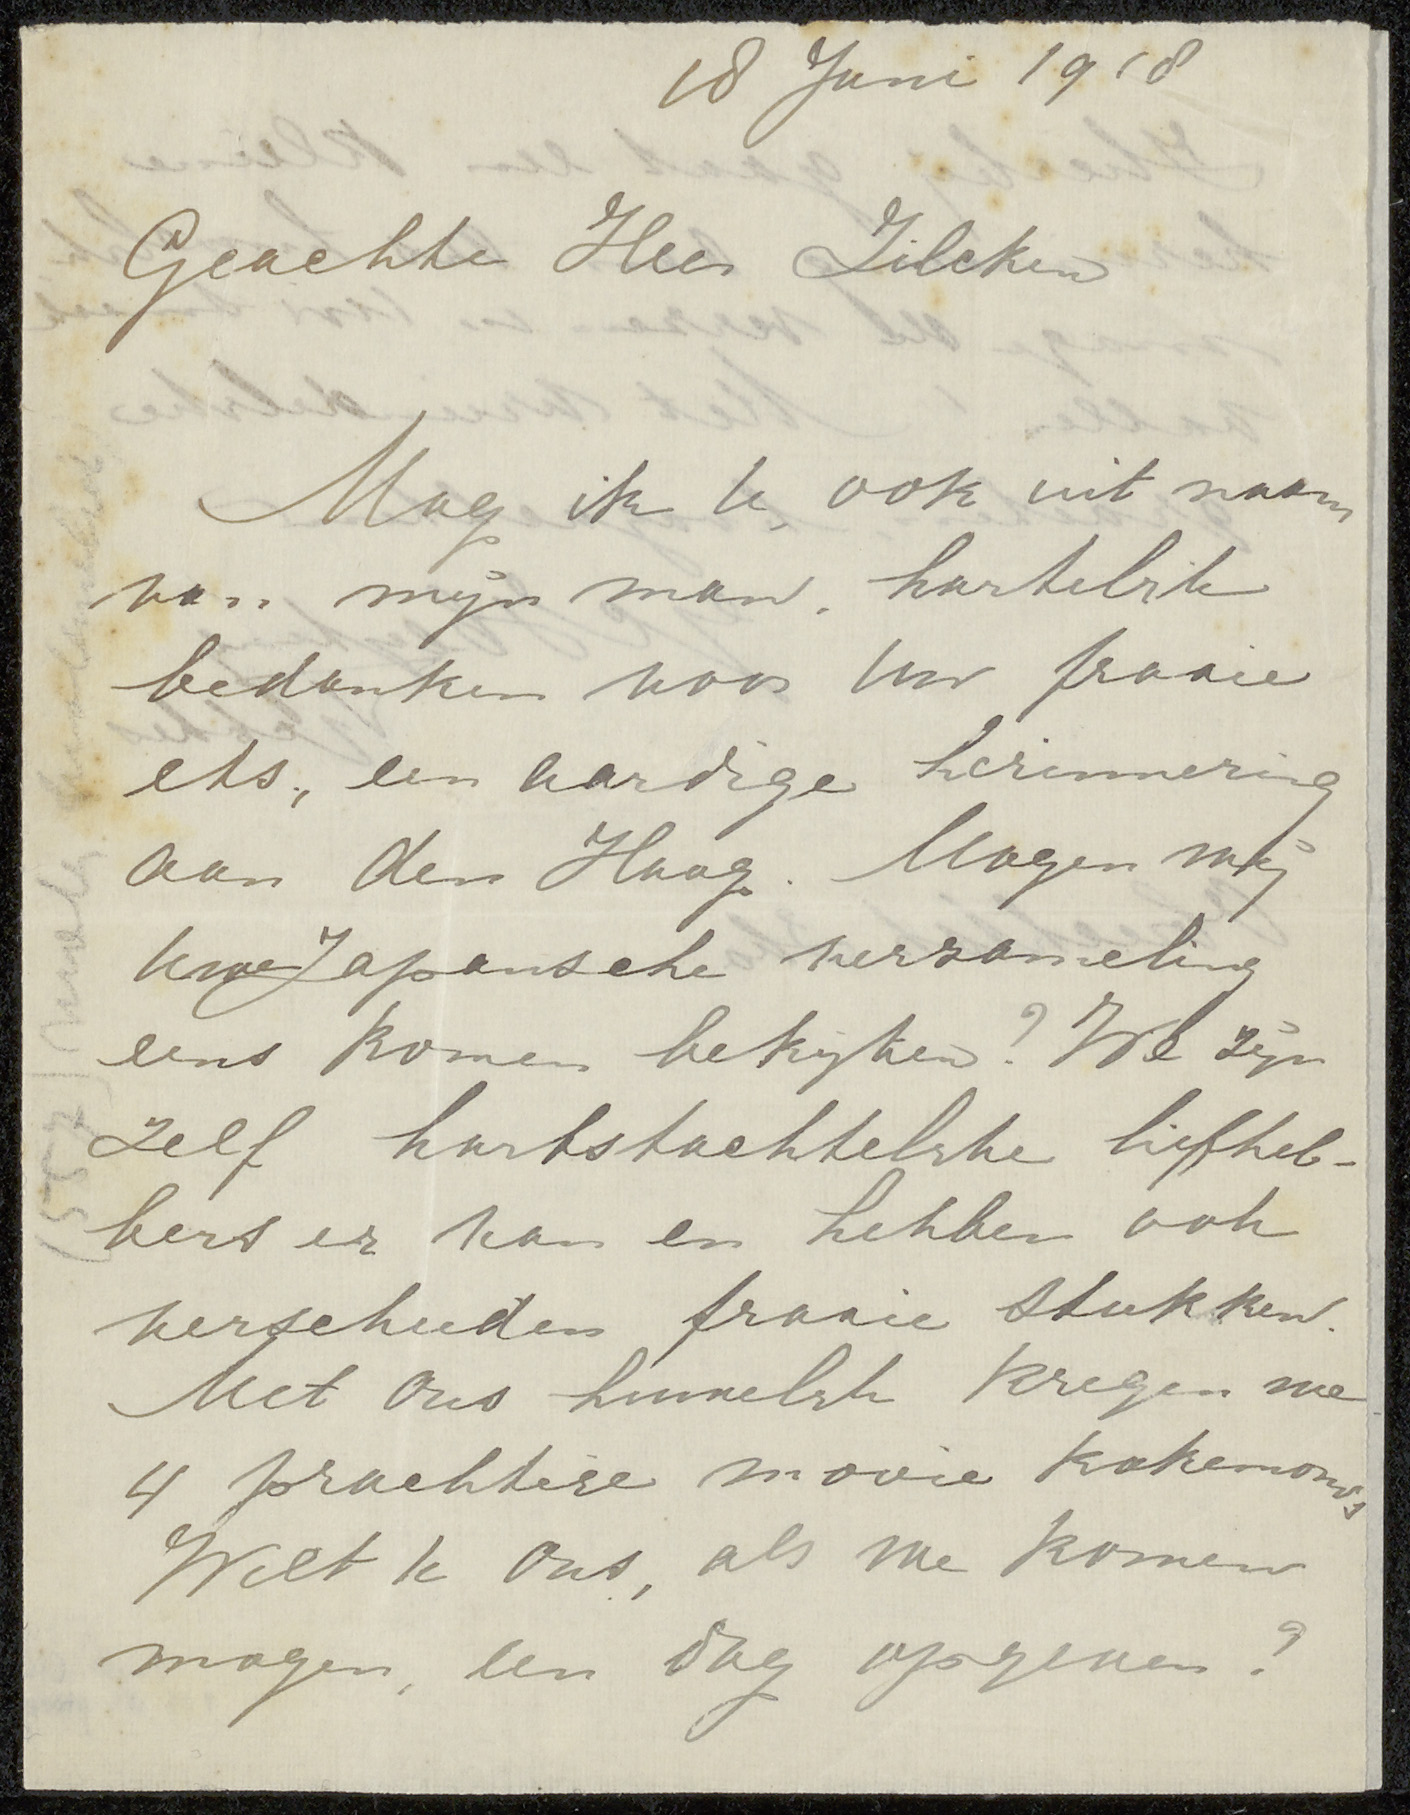 18 Juni 1918
Geachte Heer Zilcken
Mag ik U, ook uit naam
van mijn man, hartelik
bedanken voor Uw fraaie
ets, een aardige herinnering
aan den Haag. Mogen wij
Uwe Japansche verzameling
eens komen bekijken? We zijn
zelf hartstochtelike liefheb-
bers er van en hebben ook
verscheiden fraaie stukken.
Met ons huwelik kregen we
4 prachtige mooie kakemono's
Wilt U ons, als we komen
mogen, een dag opgeven?